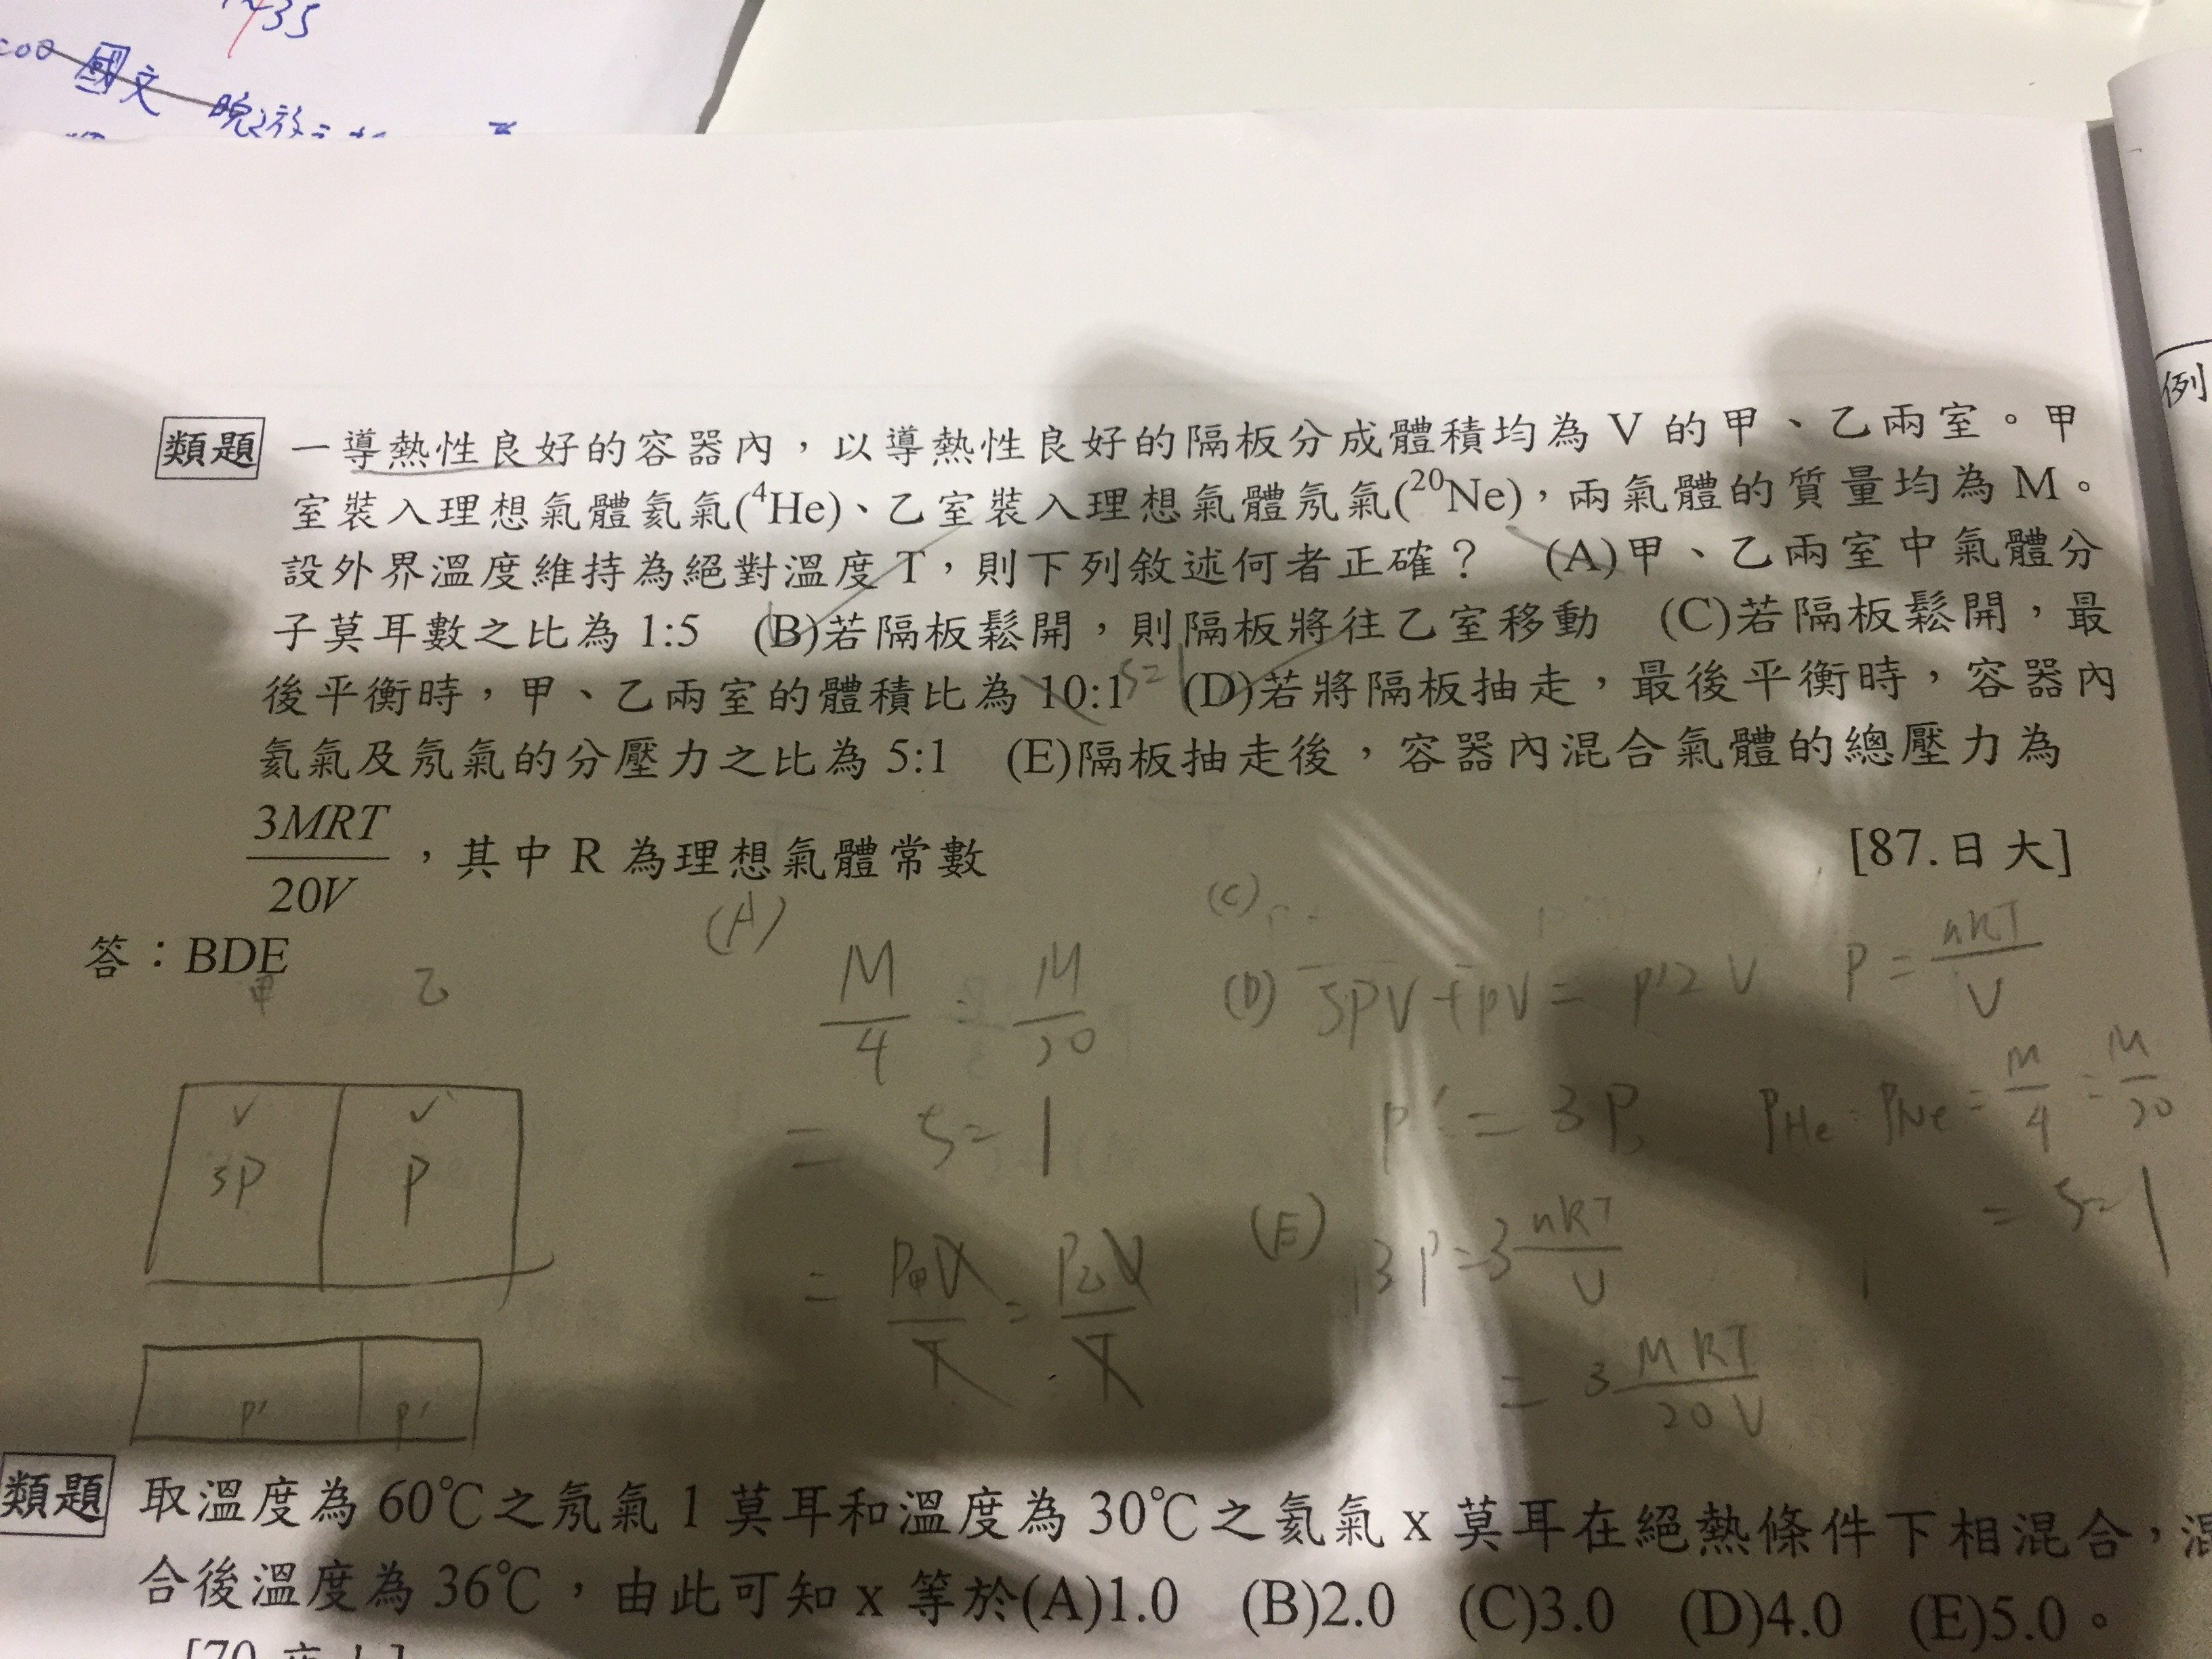 35
國文
類題 一導熱性良好的容器內,以導熱性良好的隔板分成體積均為 V 的甲、乙兩室。甲
例
室裝入理想氣體氦氣(⁴He)、乙室裝入理想氣體氖氣(²⁰Ne),兩氣體的質量均為 M。
設外界溫度維持為絕對溫度 T,則下列敘述何者正確? (A)甲、乙兩室中氣體分
子莫耳數之比為 1:5 (B)若隔板鬆開,則隔板將往乙室移動 (C)若隔板鬆開,最
後平衡時,甲、乙兩室的體積比為 10:1 5:1 (D)若將隔板抽走,最後平衡時,容器內
氦氣及氖氣的分壓力之比為 5:1 (E)隔板抽走後,容器內混合氣體的總壓力為
3MRT/20V,其中 R 為理想氣體常數 [87.日大]
答:BDE
甲 乙
V V
5P P
P' P'
(A)
M/4 : M/20
= 5:1
= P甲V/T = P乙V/T
(C)
(D) 5PV+PV = P'2V
P' = 3P
P = nRT/V
PHe : PNe = M/4 : M/20
= 5:1
(E) 3P = 3 nRT/V
= 3 MRT/20V
類題 取溫度為 60℃之氖氣 1 莫耳和溫度為 30℃之氦氣 x 莫耳在絕熱條件下相混合,混
合後溫度為 36℃,由此可知 x 等於(A)1.0 (B)2.0 (C)3.0 (D)4.0 (E)5.0。